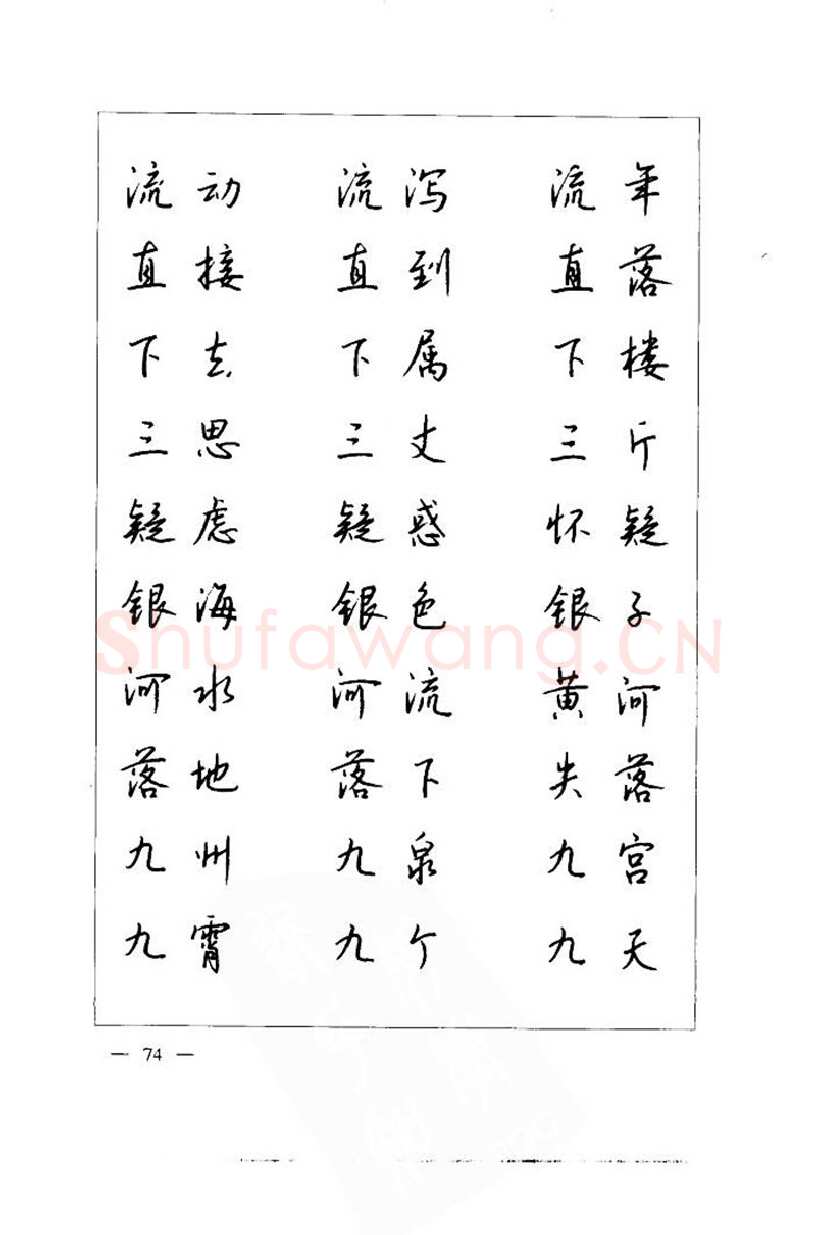 流动 流泻 流年
直接 直到 直落
下去 下属 下楼
三思 三丈 三斤
疑虑 疑惑 怀疑
银海 银色 银子
河水 河流 黄河
落地 落下 失落
九州 九泉 九宫
九霄 九个 九天
Shufawang.CN
— 74 —